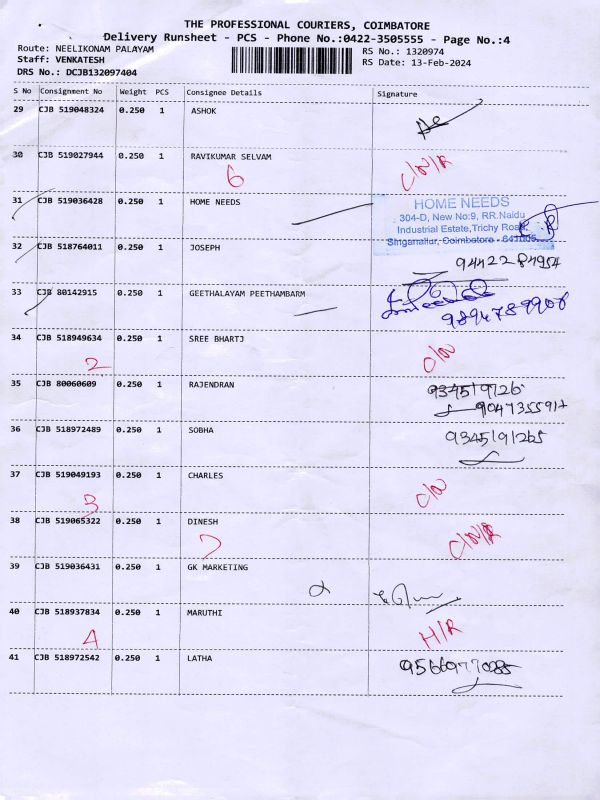 THE PROFESSIONAL COURIERS, COIMBATORE
Delivery Runsheet - PCS - Phone No.:0422-3505555 - Page No.:4
Route: NEELIKONAM PALAYAM
RS No.: 1320974
Staff: VENKATESH
RS Date: 13-Feb-2024
DRS No.: DCJB132097404
S No Consignment No Weight PCS Consignee Details Signature
29 CJB 519048324 0.250 1 ASHOK
30 CJB 519027944 0.250 1 RAVIKUMAR SELVAM
6 C/N/R
31 CJB 519036428 0.250 1 HOME NEEDS
HOME NEEDS
304-D, New No:9, RR.Naidu
Industrial Estate,Trichy Road,
Singanallur, Coimbatore
32 CJB 518764011 0.250 1 JOSEPH
33 CJB 80142915 0.250 1 GEETHALAYAM PEETHAMBARM
34 CJB 518949634 0.250 1 SREE BHARTJ
2
35 CJB 80060609 0.250 1 RAJENDRAN
36 CJB 518972489 0.250 1 SOBHA
9345191265
37 CJB 519049193 0.250 1 CHARLES
3
38 CJB 519065322 0.250 1 DINESH
7 C/N/R
39 CJB 519036431 0.250 1 GK MARKETING
40 CJB 518937834 0.250 1 MARUTHI
4 H/R
41 CJB 518972542 0.250 1 LATHA